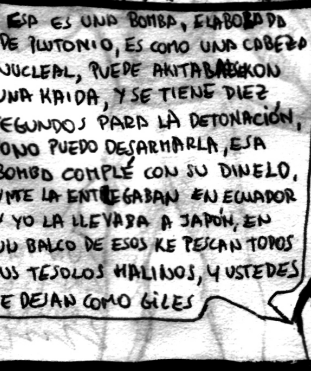 ESA ES UNA BOMBA, ELABOBADA
DE PLUTONIO, ES COMO UNA CABEZA
NUCLEAL, PUEDE AKITAB KON
UNA KAIDA, Y SE TIENE DIEZ
EGUNDOS PARA LA DETONACIÓN,
ONO PUEDO DESARMARLA, ESA
BOMBA COMPLÉ CON SU DINELO,
ME LA ENTLEGABAN EN ECUADOR
Y YO LA LLEVABA A JAPÓN, EN
UN BALCO DE ESOS KE PESCAN TODOS
US TESOLOS MALINOS, Y USTEDES
E DEJAN COMO GILES